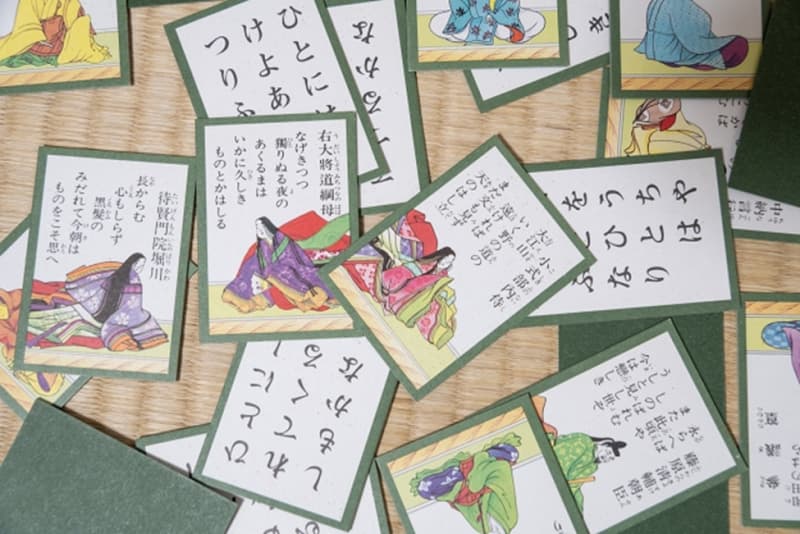 ひとに
けよあ
つりふ
るかな
待賢門院堀川
長からむ
心もしらず
黒髪の
みだれて今朝は
ものをこそ思へ
右大將道綱母
なげきつつ
獨りぬる夜の
あくるまは
いかに久しき
ものとかはしる
小式部内侍
大江山
いく野の道の
遠ければ
まだ文も見ず
天の橋立
やは
ちとり
うひな
ひとにし
れてく
しもかな
藤原清輔朝臣
永らへば
また此頃や
しのばれむ
うしと見し世ぞ
今は戀しき